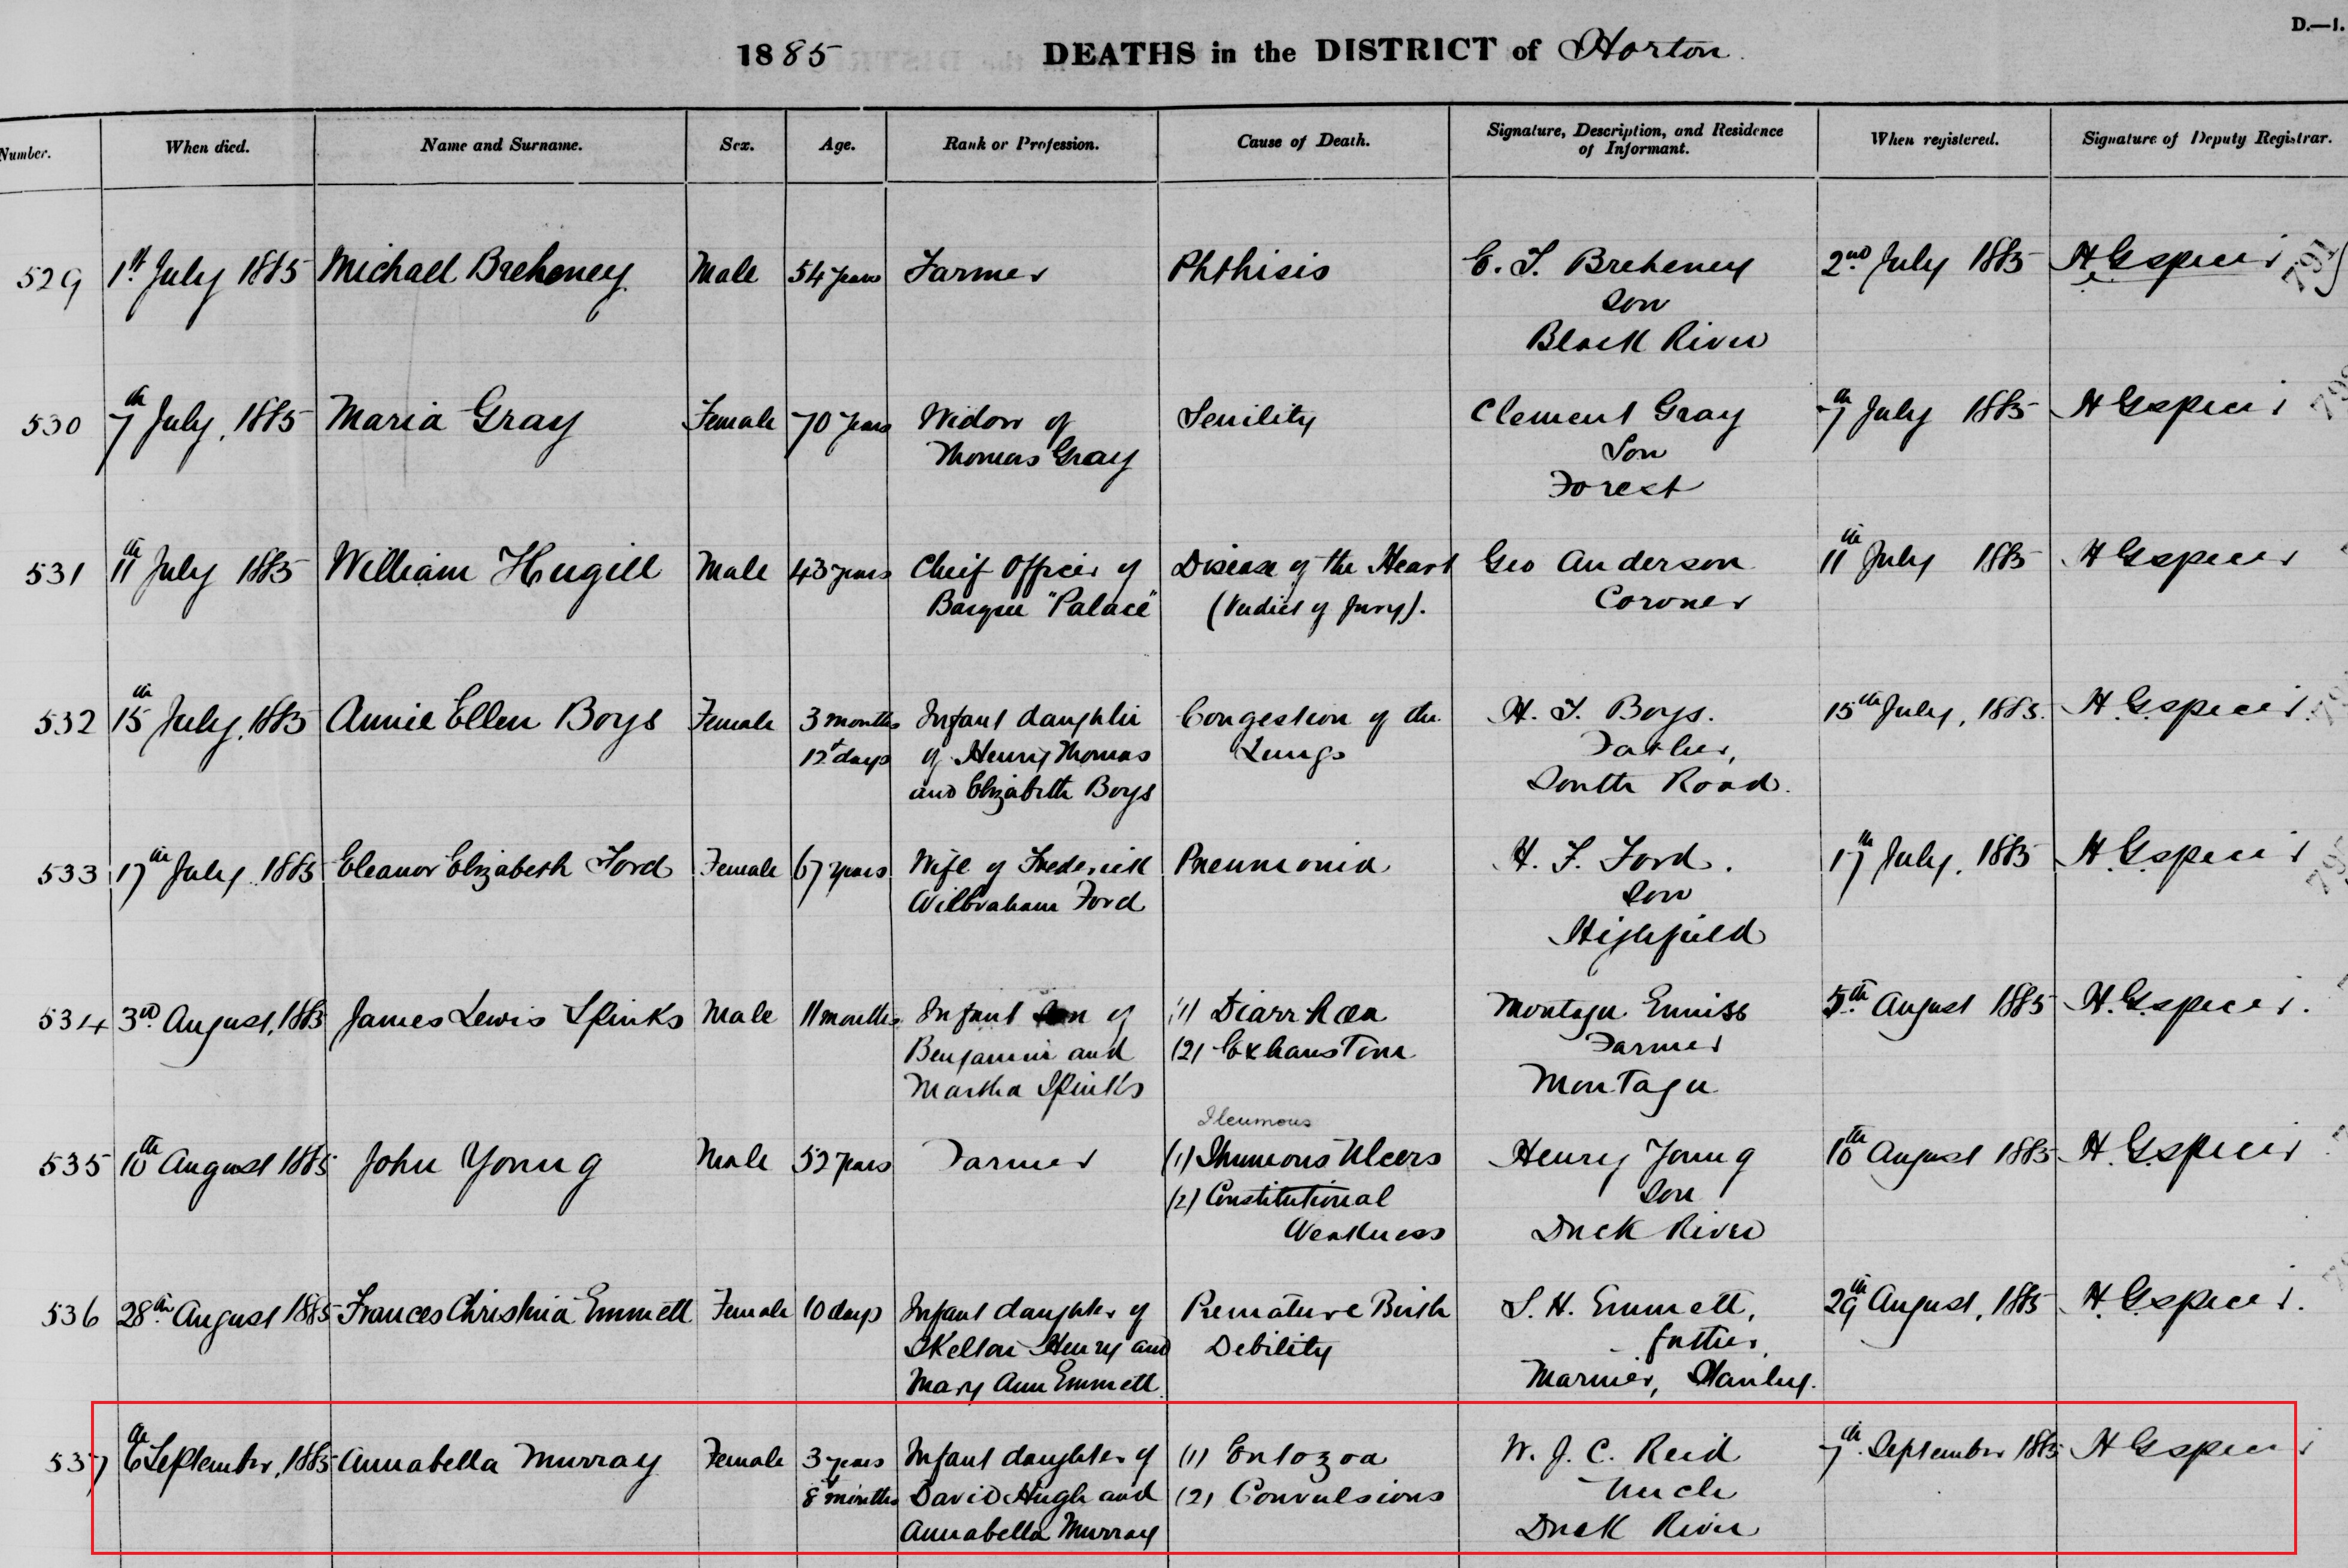 D.—1.
1885 DEATHS in the DISTRICT of Horton.
Number. When died. Name and Surname. Sex. Age. Rank or Profession. Cause of Death. Signature, Description, and Residence of Informant. When registered. Signature of Deputy Registrar.
529 1st July 1885 Michael Breheney Male 54 years Farmer Phthisis C. T. Breheney 2nd July 1885
Son
Black River
530 7th July, 1885 Maria Gray Female 70 years Widow of Senility Clement Gray 7th July 1885
Thomas Gray Son
Forest
531 11th July 1885 William Hugill Male 43 years Cheif Officer of Disease of the Heart Geo Anderson 11th July 1885
Barque "Palace" (Verdict of Jury). Coroner
532 15th July, 1885 Annie Ellen Boys Female 3 months Infant daughter Congestion of the H. T. Boys. 15th July, 1885.
12 days of Henry Thomas Lungs Father,
and Elizabeth Boys South Road.
533 17th July, 1885 Eleanor Elizabeth Ford Female 67 years Wife of Frederick Pneumonia H. F. Ford. 17th July, 1885
Wilbraham Ford Son
Highfield
534 3rd August, 1885 James Lewis Spinks Male 11 months Infant Son of (1) Diarrhœa Montagu Enniss 5th August 1885
Benjamin and (2) Exhaustion Farmer
Martha Spinks Montagu
Ileumous
535 10th August 1885 John Young Male 52 years Farmer (1) Ulcers Henry Young 10th August 1885
(2) Constitutional Son
Weakness Duck River
536 28th August 1885 Frances Christina Emmett Female 10 days Infant daughter of Premature Birth S. H. Emmett, 29th August, 1885
Skelton Henry and Debility father,
Mary Ann Emmett Mariner, Stanley.
537 6th September, 1885 Annabella Murray Female 3 years Infant daughter of (1) Entozoa W. J. C. Reid 7th September 1885
8 months David Hugh and (2) Convulsions Uncle
Annabella Murray Duck River